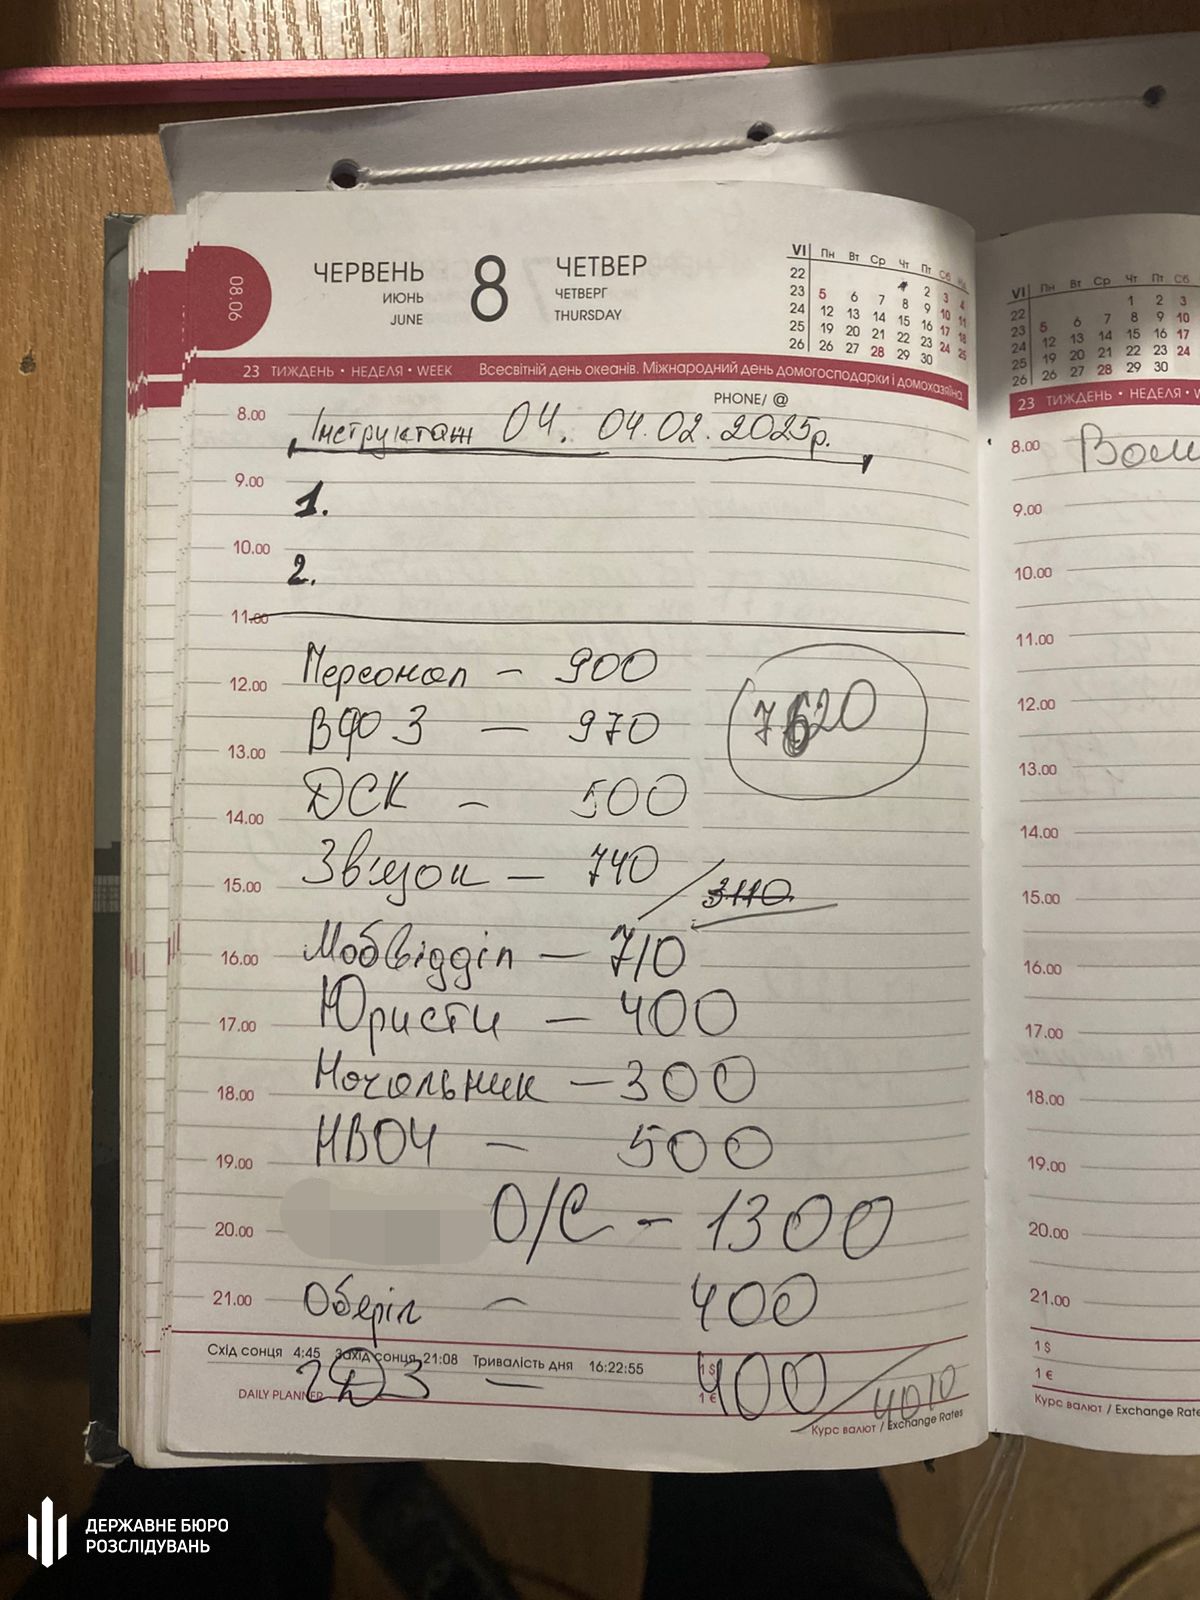 08.06
ЧЕРВЕНЬ
ИЮНЬ
JUNE
8
ЧЕТВЕР
ЧЕТВЕРГ
THURSDAY
VI Пн Вт Ср Чт Пт Сб
22 2 3 4
23 5 6 7 8 9 10 11
24 12 13 14 15 16 17 18
25 19 20 21 22 23 24 25
26 26 27 28 29 30
23 ТИЖДЕНЬ • НЕДЕЛЯ • WEEK Всесвітній день океанів. Міжнародний день домогосподарки і домохазяїна
PHONE/ @
8.00 Інструктаж ОЧ. 04.02.2025р.
9.00 1.
10.00 2.
11.00
12.00 Персонал – 900
7620
13.00 ВФОЗ – 970
14.00 ДСК – 500
15.00 Зв'язок – 740
3110
16.00 Мобвідділ – 710
17.00 Юристи – 400
18.00 Начальник – 300
19.00 НВОЧ – 500
20.00 О/С – 1300
21.00 Оберіг – 400
Схід сонця 4:45 Захід сонця 21:08 Тривалість дня 16:22:55 1 $
DAILY PLANNER 1 €
– 400 4010
Курс валют / Exchange Rates
VI Пн Вт Ср Чт Пт Сб
22 1 2 3
23 5 6 7 8 9 10
24 12 13 14 15 16 17
25 19 20 21 22 23 24
26 26 27 28 29 30
23 ТИЖДЕНЬ • НЕДЕЛЯ •
8.00
9.00
10.00
11.00
12.00
13.00
14.00
15.00
16.00
17.00
18.00
19.00
20.00
21.00
1 $
1 €
Курс валют / Exchange Rates
ДЕРЖАВНЕ БЮРО
РОЗСЛІДУВАНЬ